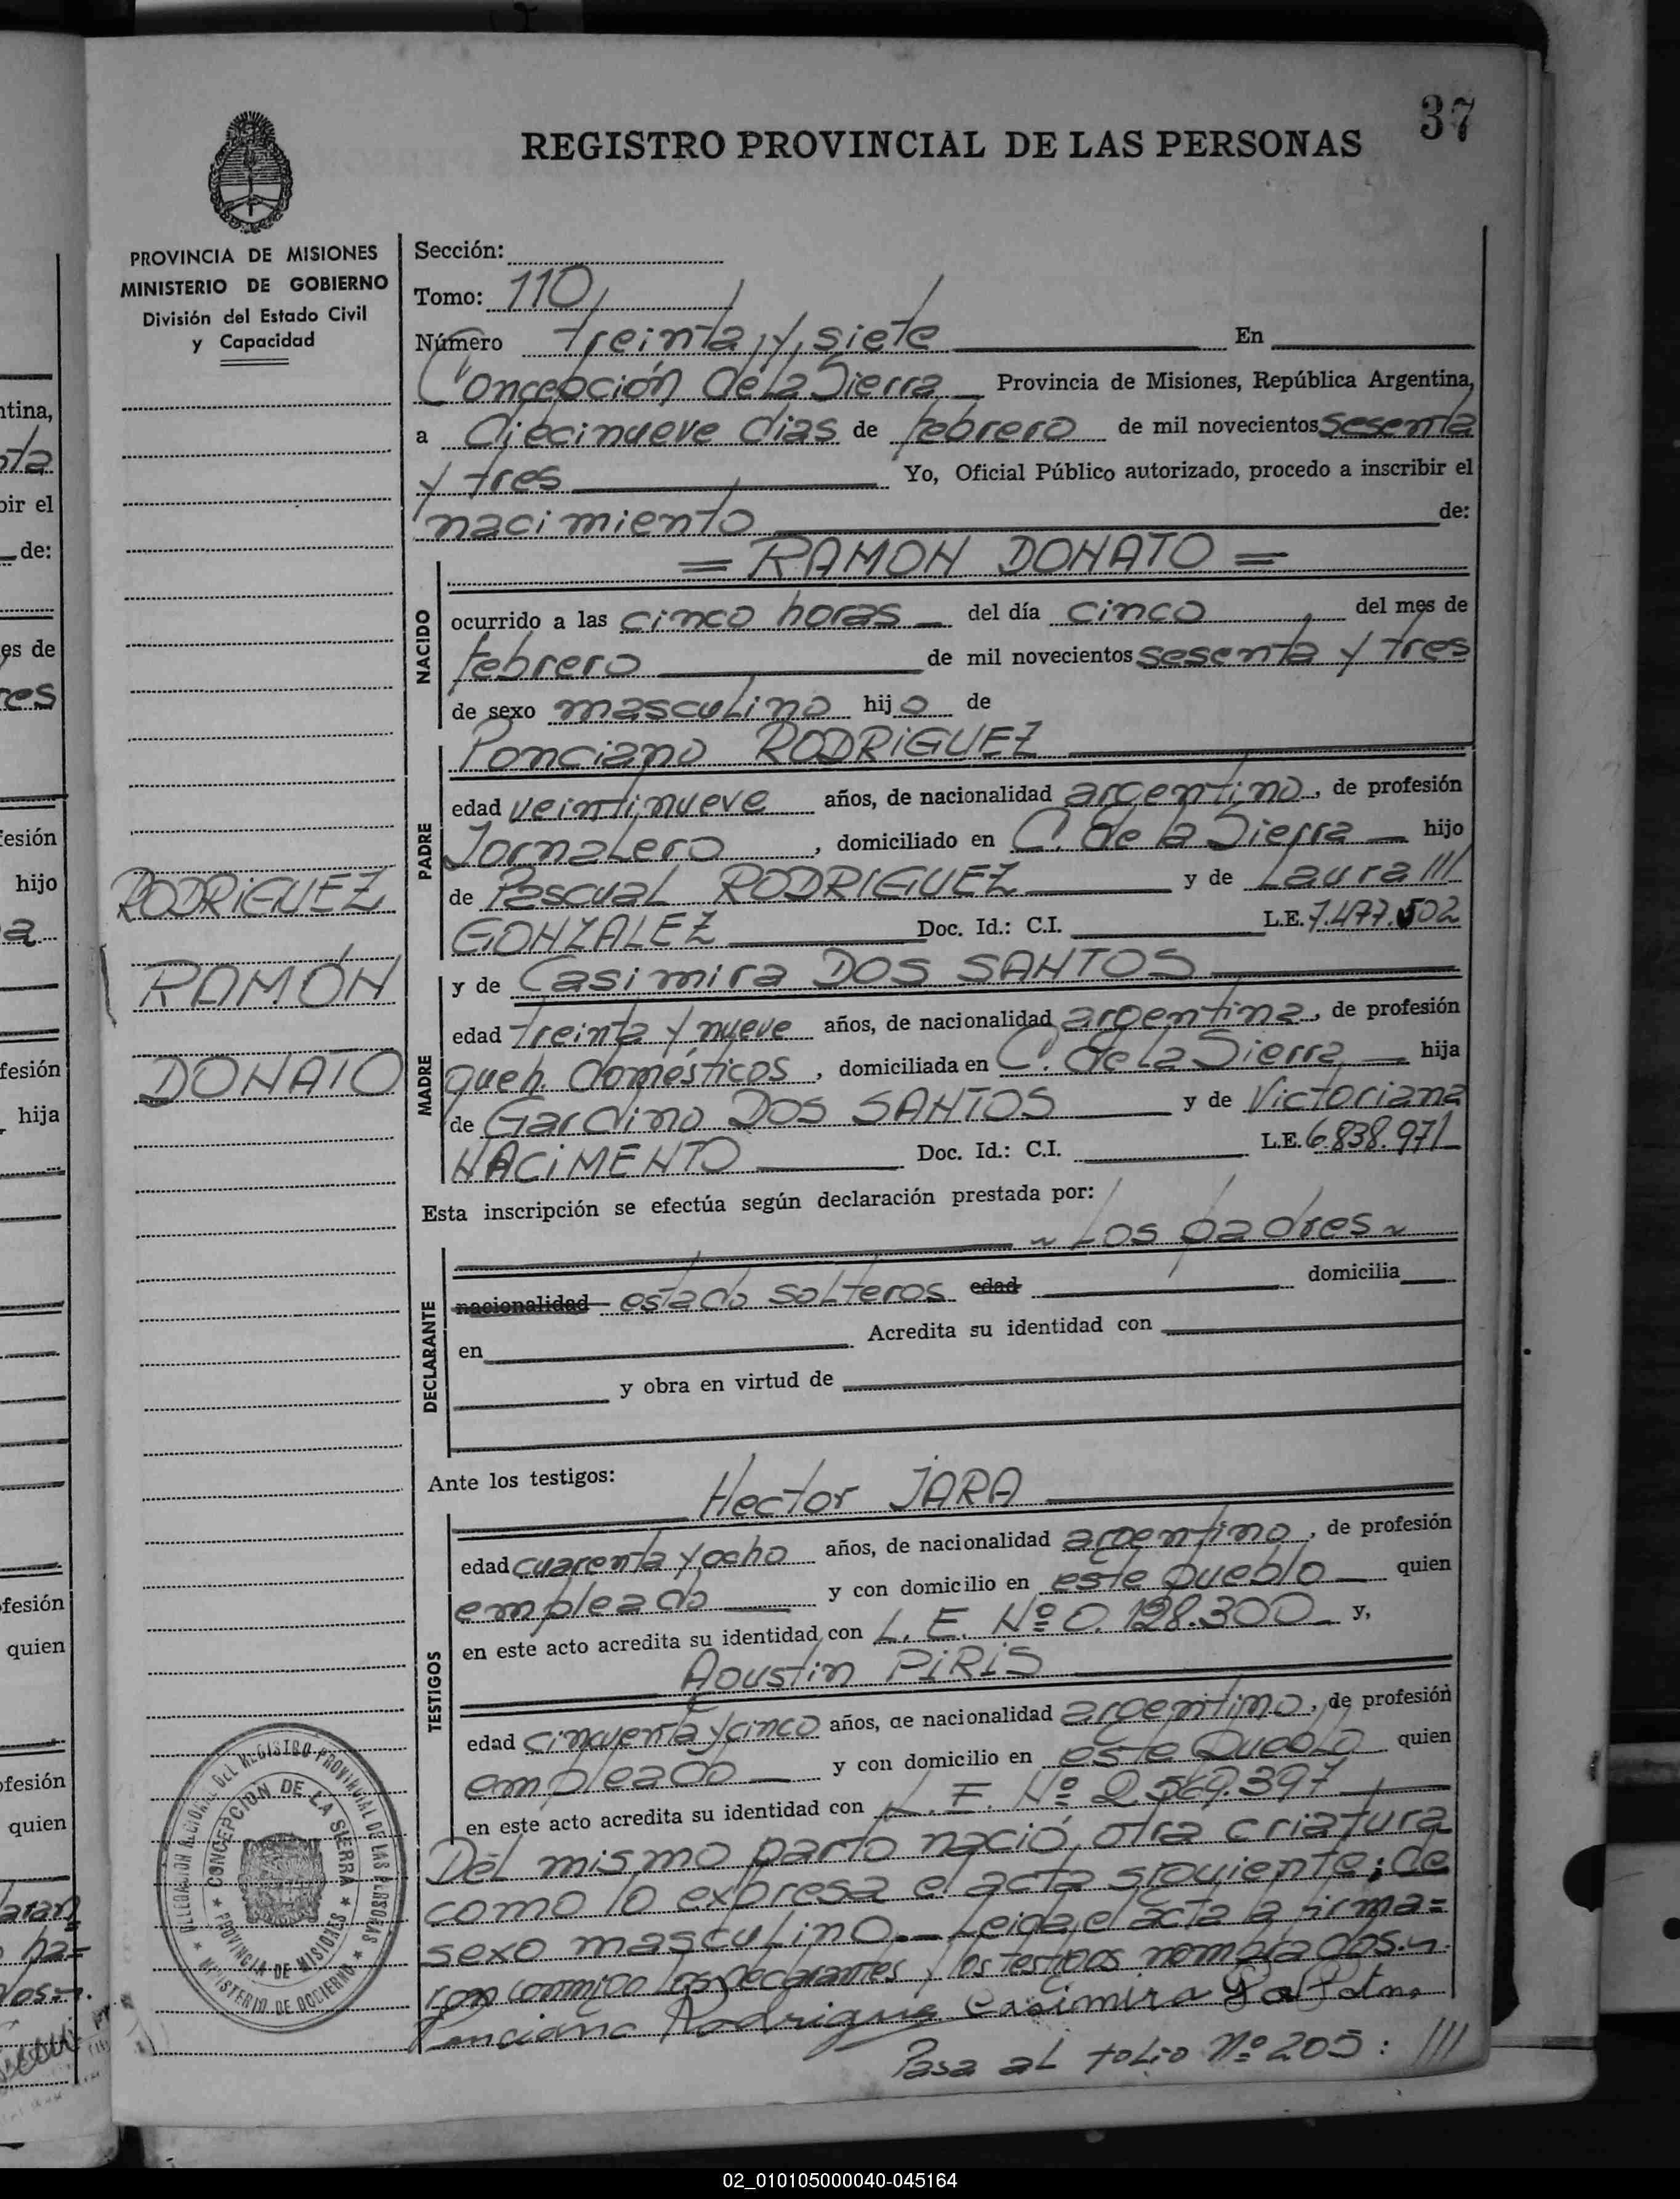 37
REGISTRO PROVINCIAL DE LAS PERSONAS
PROVINCIA DE MISIONES
MINISTERIO DE GOBIERNO
División del Estado Civil
y Capacidad
RODRIGUEZ
RAMÓN
DONATO
Sección:
Tomo: 110
Número treinta y siete En
Concepción de la Sierra Provincia de Misiones, República Argentina,
a diecinueve dias de febrero de mil novecientos sesenta
y tres Yo, Oficial Público autorizado, procedo a inscribir el
nacimiento de:
= RAMON DONATO =
NACIDO
ocurrido a las cinco horas del día cinco del mes de
febrero de mil novecientos sesenta y tres
de sexo masculino hijo de
PADRE
Ponciano RODRIGUEZ
edad veintinueve años, de nacionalidad argentino, de profesión
Jornalero, domiciliado en C. de la Sierra hijo
de Pascual RODRIGUEZ y de Laura ///
GONZALEZ Doc. Id.: C.I. L.E. 7.477.502
MADRE
y de Casimira DOS SANTOS
edad treinta y nueve años, de nacionalidad argentina, de profesión
queh. domésticos, domiciliada en C. de la Sierra hija
de Gardino DOS SANTOS y de Victoriana
NACIMENTO Doc. Id.: C.I. L.E. 6.838.971
Esta inscripción se efectúa según declaración prestada por:
~ Los padres ~
DECLARANTE
nacionalidad estado solteros edad domicilia
en Acredita su identidad con
y obra en virtud de
Ante los testigos:
Hector JARA
TESTIGOS
edad cuarenta y ocho años, de nacionalidad argentino, de profesión
empleado y con domicilio en este pueblo quien
en este acto acredita su identidad con L. E. Nº 0.128.300 y,
Agustin PIRIS
edad cincuenta y cinco años, de nacionalidad argentino, de profesión
empleado y con domicilio en este pueblo quien
en este acto acredita su identidad con L. E. Nº 2.569.397
Del mismo parto nació otra criatura
como lo expresa el acta siguiente; de
sexo masculino.— Leida el acta la firma=
ron conmigo los declarantes y los testigos nombrados.
Ponciano Rodrigue Casimira
Pasa al folio Nº 205: ///
DELEGACION REGIONAL DEL REGISTRO PROVINCIAL DE LAS PERSONAS
CONCEPCION DE LA SIERRA
PROVINCIA DE MISIONES
MINISTERIO DE GOBIERNO
02_010105000040-045164